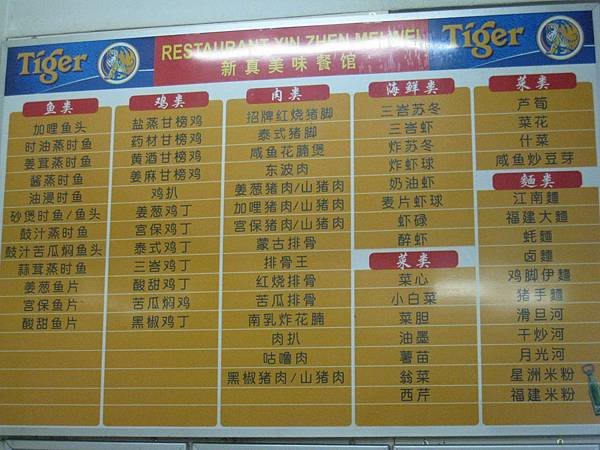 Tiger
RESTAURANT XIN ZHEN MEI WEI
新真美味餐馆
Tiger
鱼类
加哩鱼头
时油蒸时鱼
姜茸蒸时鱼
酱蒸时鱼
油浸时鱼
砂煲时鱼/鱼头
鼓汁蒸时鱼
鼓汁苦瓜焖鱼头
蒜茸蒸时鱼
姜葱鱼片
宫保鱼片
酸甜鱼片
鸡类
盐蒸甘榜鸡
药材甘榜鸡
黄酒甘榜鸡
姜麻甘榜鸡
鸡扒
姜葱鸡丁
宫保鸡丁
泰式鸡丁
三峇鸡丁
酸甜鸡丁
苦瓜焖鸡
黑椒鸡丁
肉类
招牌红烧猪脚
泰式猪脚
咸鱼花腩煲
东波肉
姜葱猪肉/山猪肉
加哩猪肉/山猪肉
宫保猪肉/山猪肉
蒙古排骨
排骨王
红烧排骨
苦瓜排骨
南乳炸花腩
肉扒
咕噜肉
黑椒猪肉/山猪肉
海鲜类
三峇苏冬
三峇虾
炸苏冬
炸虾球
奶油虾
麦片虾球
虾碌
醉虾
菜类
菜心
小白菜
菜胆
油墨
薯苗
翁菜
西芹
菜类
芦筍
菜花
什菜
咸鱼炒豆芽
麵类
江南麵
福建大麵
蚝麵
卤麵
鸡脚伊麵
猪手麵
滑旦河
干炒河
月光河
星洲米粉
福建米粉